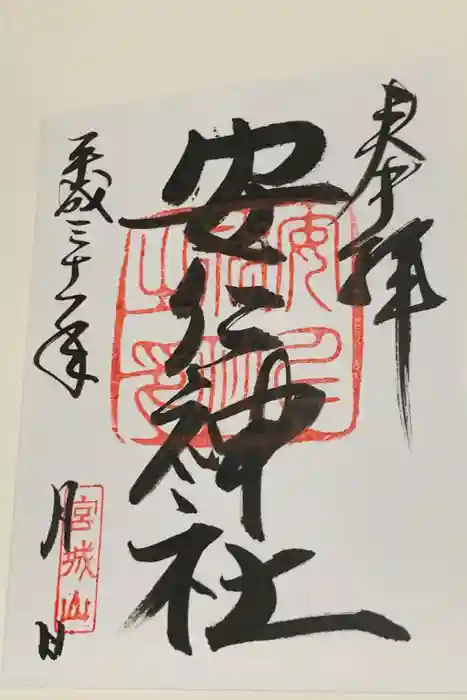 奉拝
安仁神社
平成三十一年
月
日
宮城山